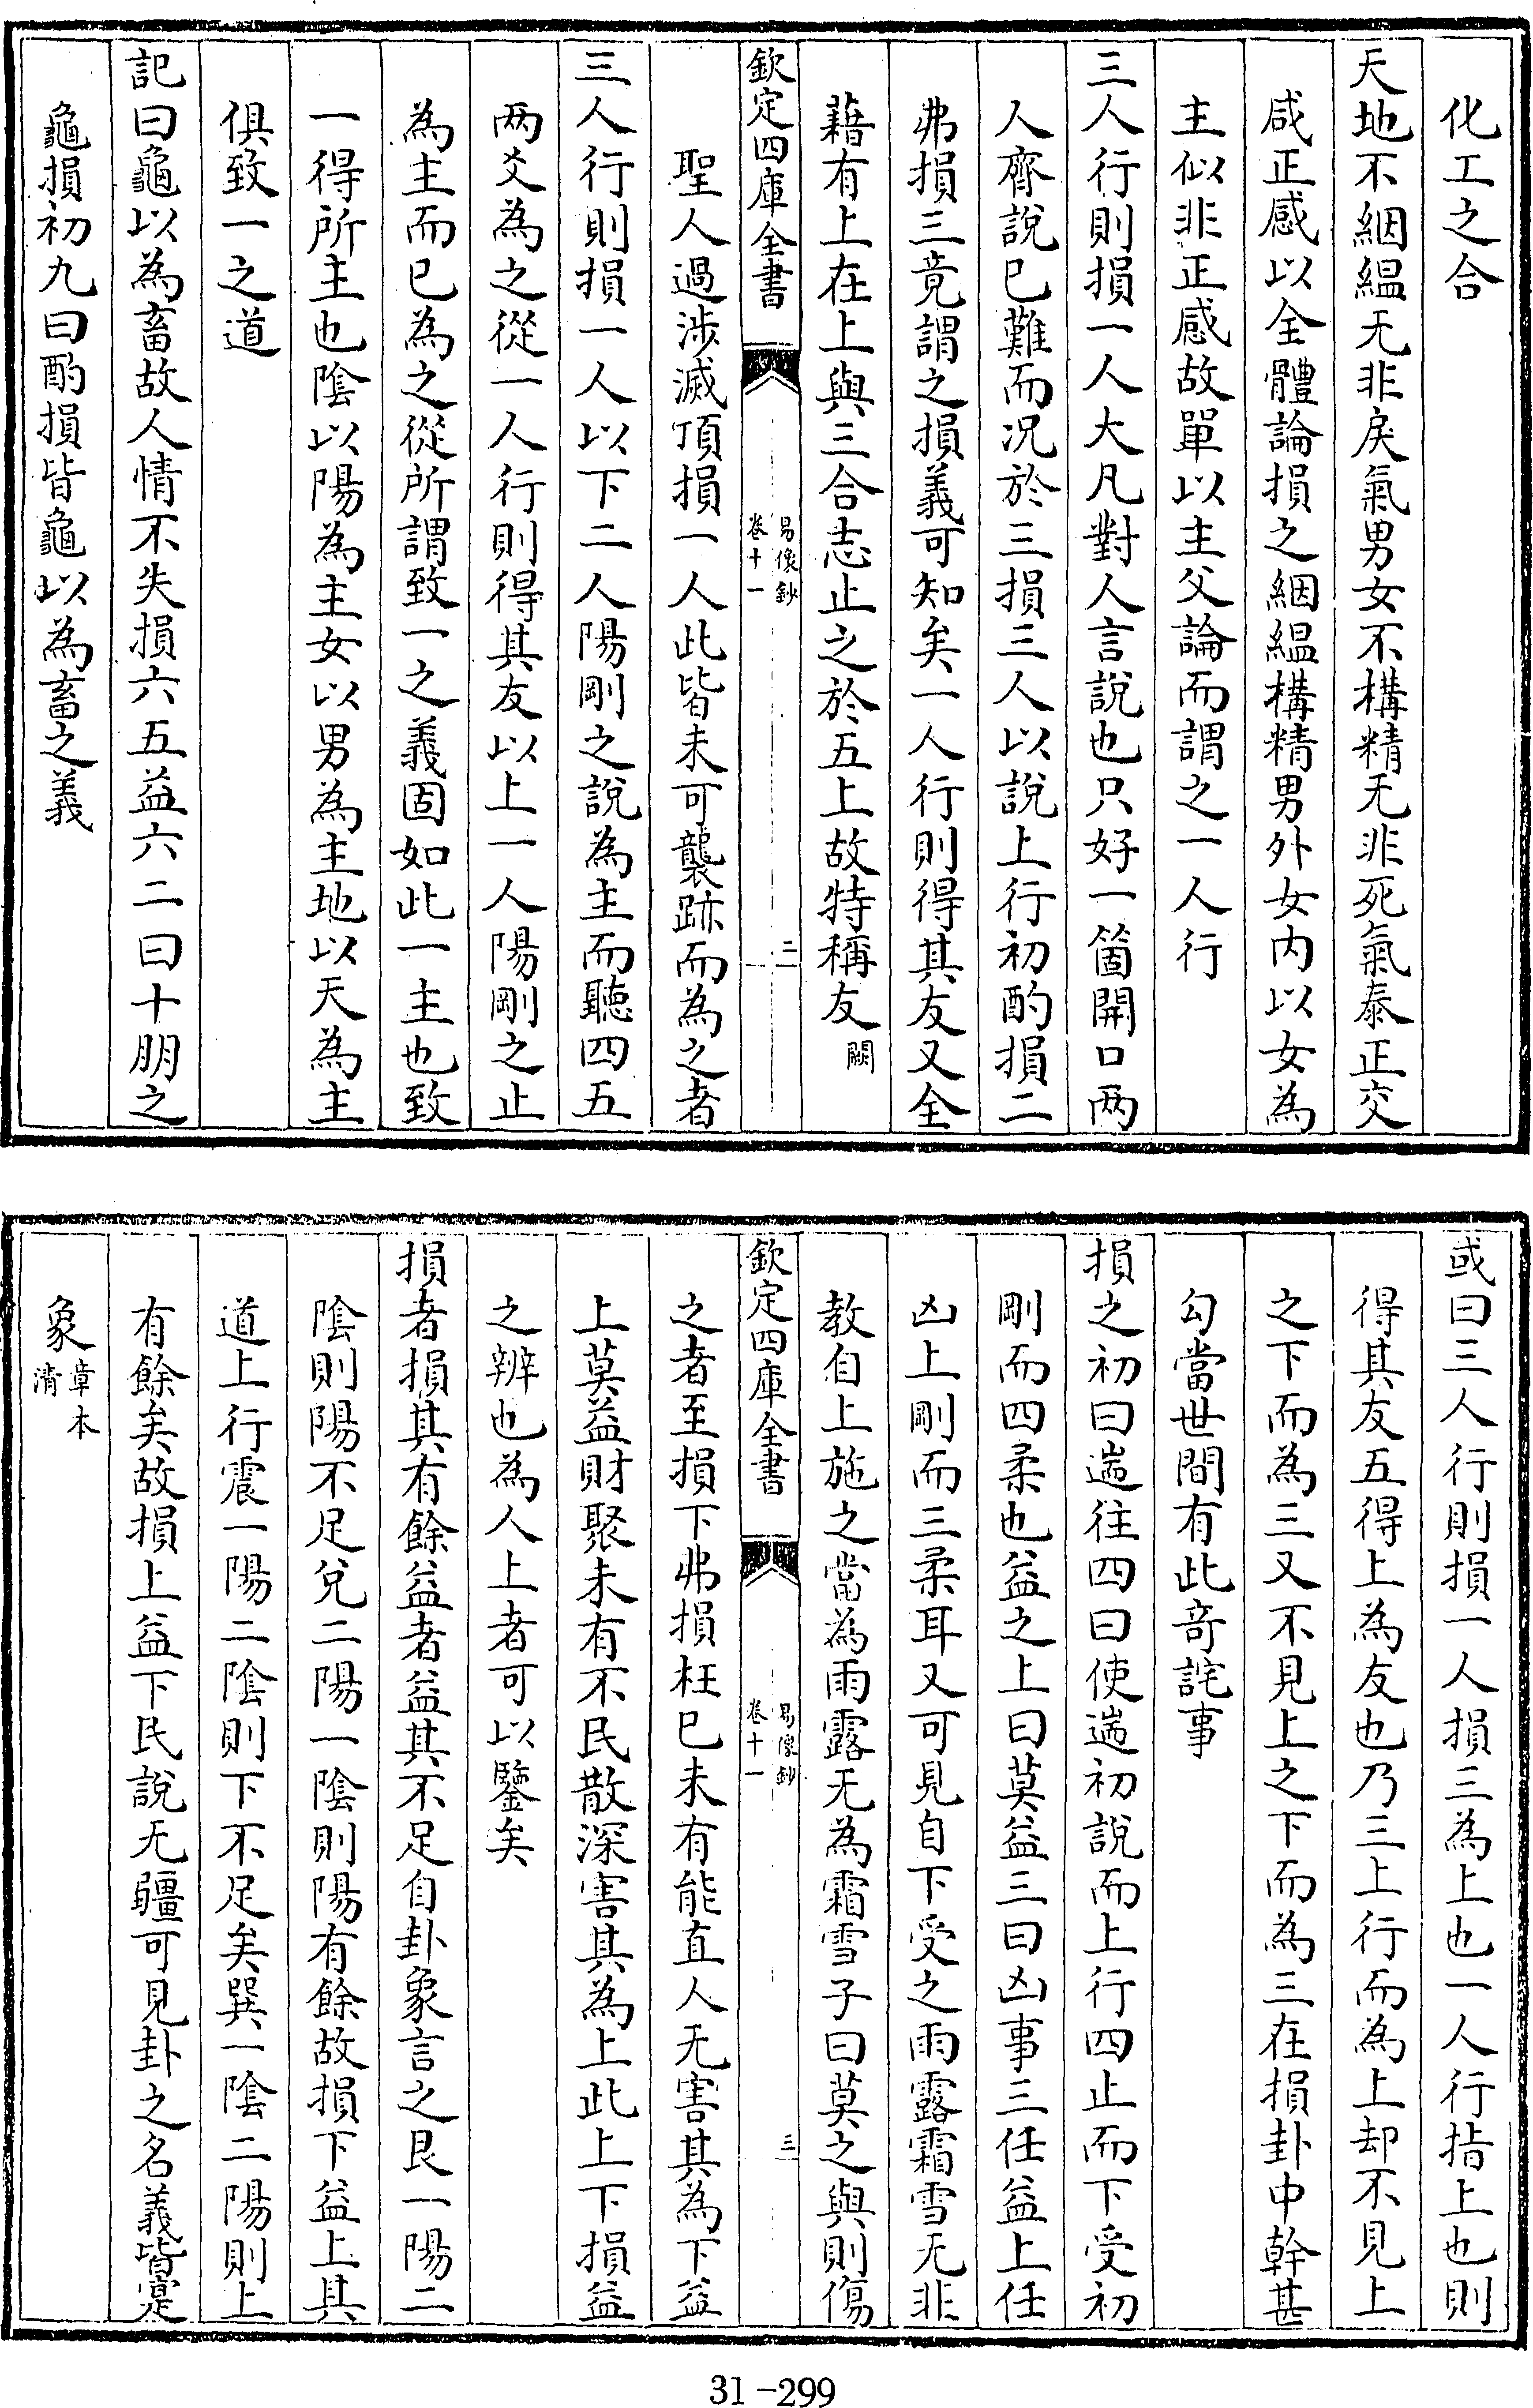 化工之合
天地不絪縕无非戾氣男女不構精无非死氣泰正交
咸正感以全體論損之絪縕構精男外女内以女為
主似非正感故單以主父論而謂之一人行
三人行則損一人大凡對人言說也只好一箇開口两
人齊說已難而况於三損三人以說上行初酌損二
弗損三竟謂之損義可知矣一人行則得其友又全
藉有上在上與三合志止之於五上故特稱友闕
欽定四庫全書 易像鈔 卷十一 二
聖人過涉滅頂損一人此皆未可襲跡而為之者
三人行則損一人以下二人陽剛之說為主而聽四五
两爻為之從一人行則得其友以上一人陽剛之止
為主而已為之從所謂致一之義固如此一主也致
一得所主也陰以陽為主女以男為主地以天為主
俱致一之道
記曰龜以為畜故人情不失損六五益六二曰十朋之
龜損初九曰酌損皆龜以為畜之義
或曰三人行則損一人損三為上也一人行指上也則
得其友五得上為友也乃三上行而為上却不見上
之下而為三又不見上之下而為三在損卦中幹甚
勾當世間有此竒詫事
損之初曰遄往四曰使遄初說而上行四止而下受初
剛而四柔也益之上曰莫益三曰凶事三任益上任
凶上剛而三柔耳又可見自下受之雨露霜雪无非
教自上施之當為雨露无為霜雪子曰莫之與則傷
欽定四庫全書 易像鈔 卷十一 三
之者至損下弗損枉已未有能直人无害其為下益
上莫益財聚未有不民散深害其為上此上下損益
之辨也為人上者可以鑒矣
損者損其有餘益者益其不足自卦象言之艮一陽二
陰則陽不足兌二陽一陰則陽有餘故損下益上其
道上行震一陽二陰則下不足矣巽一陰二陽則上
有餘矣故損上益下民說无疆可見卦之名義皆寔
象章本清
31-299